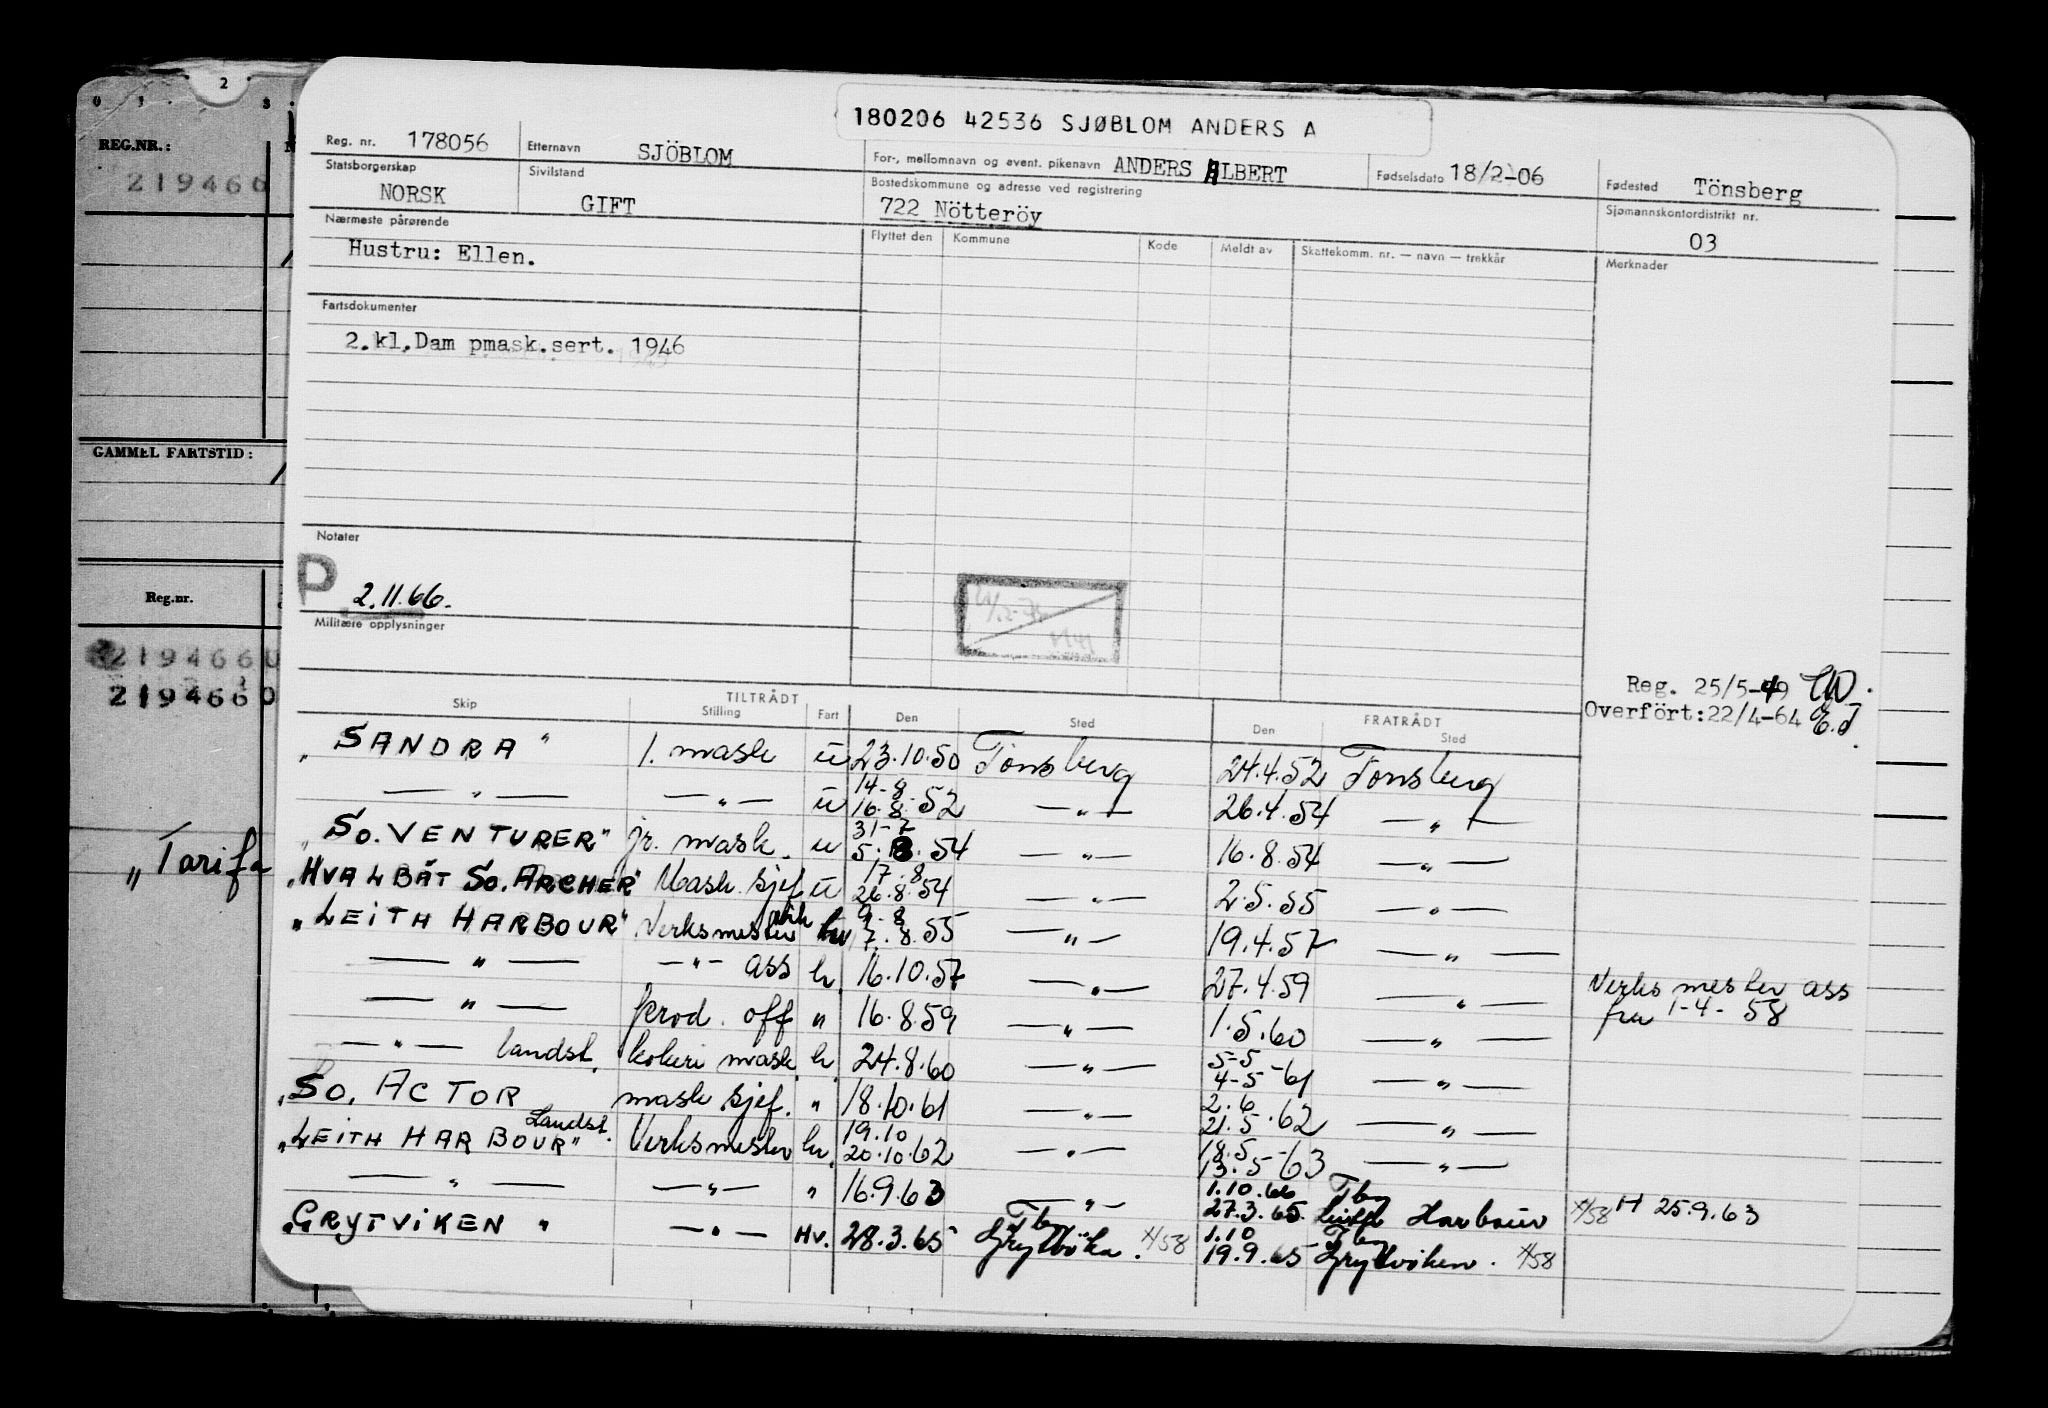 2
0 1 3
REG.NR.:
219466
GAMMEL FARTSTID:
Reg.nr.
219466U
219466O
"Tarifa
180206 42536 SJØBLOM ANDERS A
Reg. nr. 178056 Etternavn SJÖBLOM For-, mellomnavn og event. pikenavn ANDERS ALBERT Fødselsdato 18/2-06 Fødested Tönsberg
Statsborgerskap NORSK Sivilstand GIFT Bostedskommune og adresse ved registrering 722 Nötteröy Sjømannskontordistrikt nr. 03
Nærmeste pårørende Flyttet den Kommune Kode Meldt av Skattekomm. nr. — navn — trekkår Merknader
Hustru: Ellen.
Fartsdokumenter
2.kl.Dam pmask.sert. 1946
Notater
P 2.11.66.
Militære opplysninger
Reg. 25/5-49
Overfört:22/4-64 E.T.
TILTRÅDT FRATRÅDT
Skip Stilling Fart Den Sted Den Sted
"SANDRA" 1. mask u 23.10.50 Tönsberg 24.4.52 Tönsberg
— " — — " — u 14-8 16.8.52 — " — 26.4.54 — " —
"SO. VENTURER" jr. mask. u 31-7 5.8.54 — " — 16.8.54 — " —
"HVALBÅT SO. ARCHER" Mask. sjef u 17.8 26.8.54 — " — 2.5.55 — " —
"LEITH HARBOUR" Verksmester hv 9-8 7.8.55 — " — 19.4.57 — " —
— " — — " — ass h. 16.10.57 — " — 27.4.59 — " — Verksmester ass fra 1-4-58
— " — prod. off " 16.8.59 — " — 1.5.60 — " —
— " — landst. kokeri mask. h. 24.8.60 — " — 5-5 4-5-61 — " —
"SO. ACTOR mask sjef. " 18.10.61 — " — 2.6 21.5.62 — " —
"LEITH HARBOUR" Landst. Verksmester hv. 19.10 20.10.62 — " — 18.5 13.5-63 — " —
— " — — " — " 16.9.63 — " — 1.10.66 Tbg 27.3.65 Leith Harbour x/58 H 25.9.63
"GRYTVIKEN" — " — Hv. 28.3.65 Tbg Grytvika. x/58 1.10 Tbg 19.9.65 Grytviken. x/58